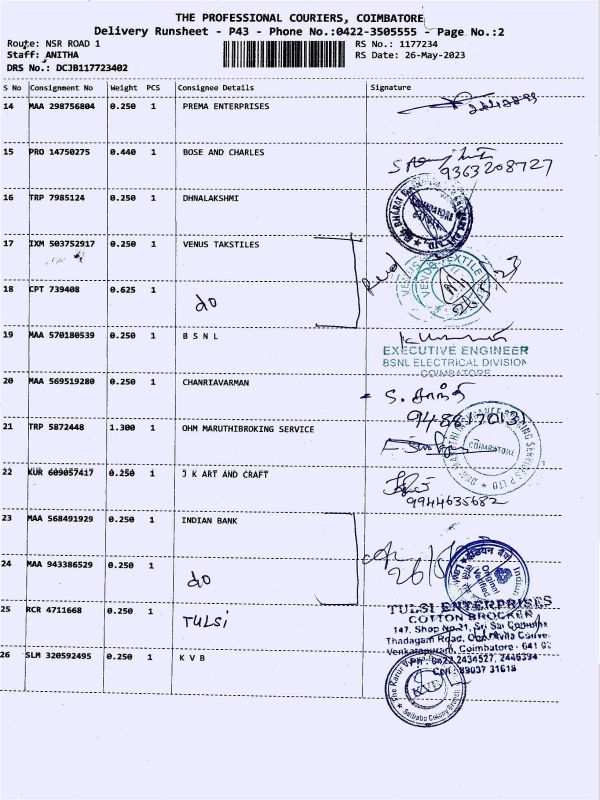 THE PROFESSIONAL COURIERS, COIMBATORE
Delivery Runsheet - P43 - Phone No.:0422-3505555 - Page No.:2
Route: NSR ROAD 1
RS No.: 1177234
Staff: ANITHA
RS Date: 26-May-2023
DRS No.: DCJB117723402
S No Consignment No Weight PCS Consignee Details Signature
14 MAA 298756804 0.250 1 PREMA ENTERPRISES
15 PRO 14750275 0.440 1 BOSE AND CHARLES
9363208727
16 TRP 7985124 0.250 1 DHNALAKSHMI
17 IXM 503752917 0.250 1 VENUS TAKSTILES
18 CPT 739408 0.625 1 do
26/5/23
19 MAA 570180539 0.250 1 B S N L
EXECUTIVE ENGINEER
BSNL ELECTRICAL DIVISION
COIMBATORE
20 MAA 569519280 0.250 1 CHANRIAVARMAN
21 TRP 5872448 1.300 1 OHM MARUTHIBROKING SERVICE
COIMBATORE
22 KUR 609057417 0.250 1 J K ART AND CRAFT
9944635682
23 MAA 568491929 0.250 1 INDIAN BANK
24 MAA 943386529 0.250 1 do
25 RCR 4711668 0.250 1 TULSI
TULSI ENTERPRISES
COTTON BROCKER
147, Shop No.21, Sri Sai
Thadagam Road,
Venkatapuram, Coimbatore - 641
Ph: 0422 2434527, 2446394
Cell: 89037 31613
26 SLM 320592495 0.250 1 K V B
KVB